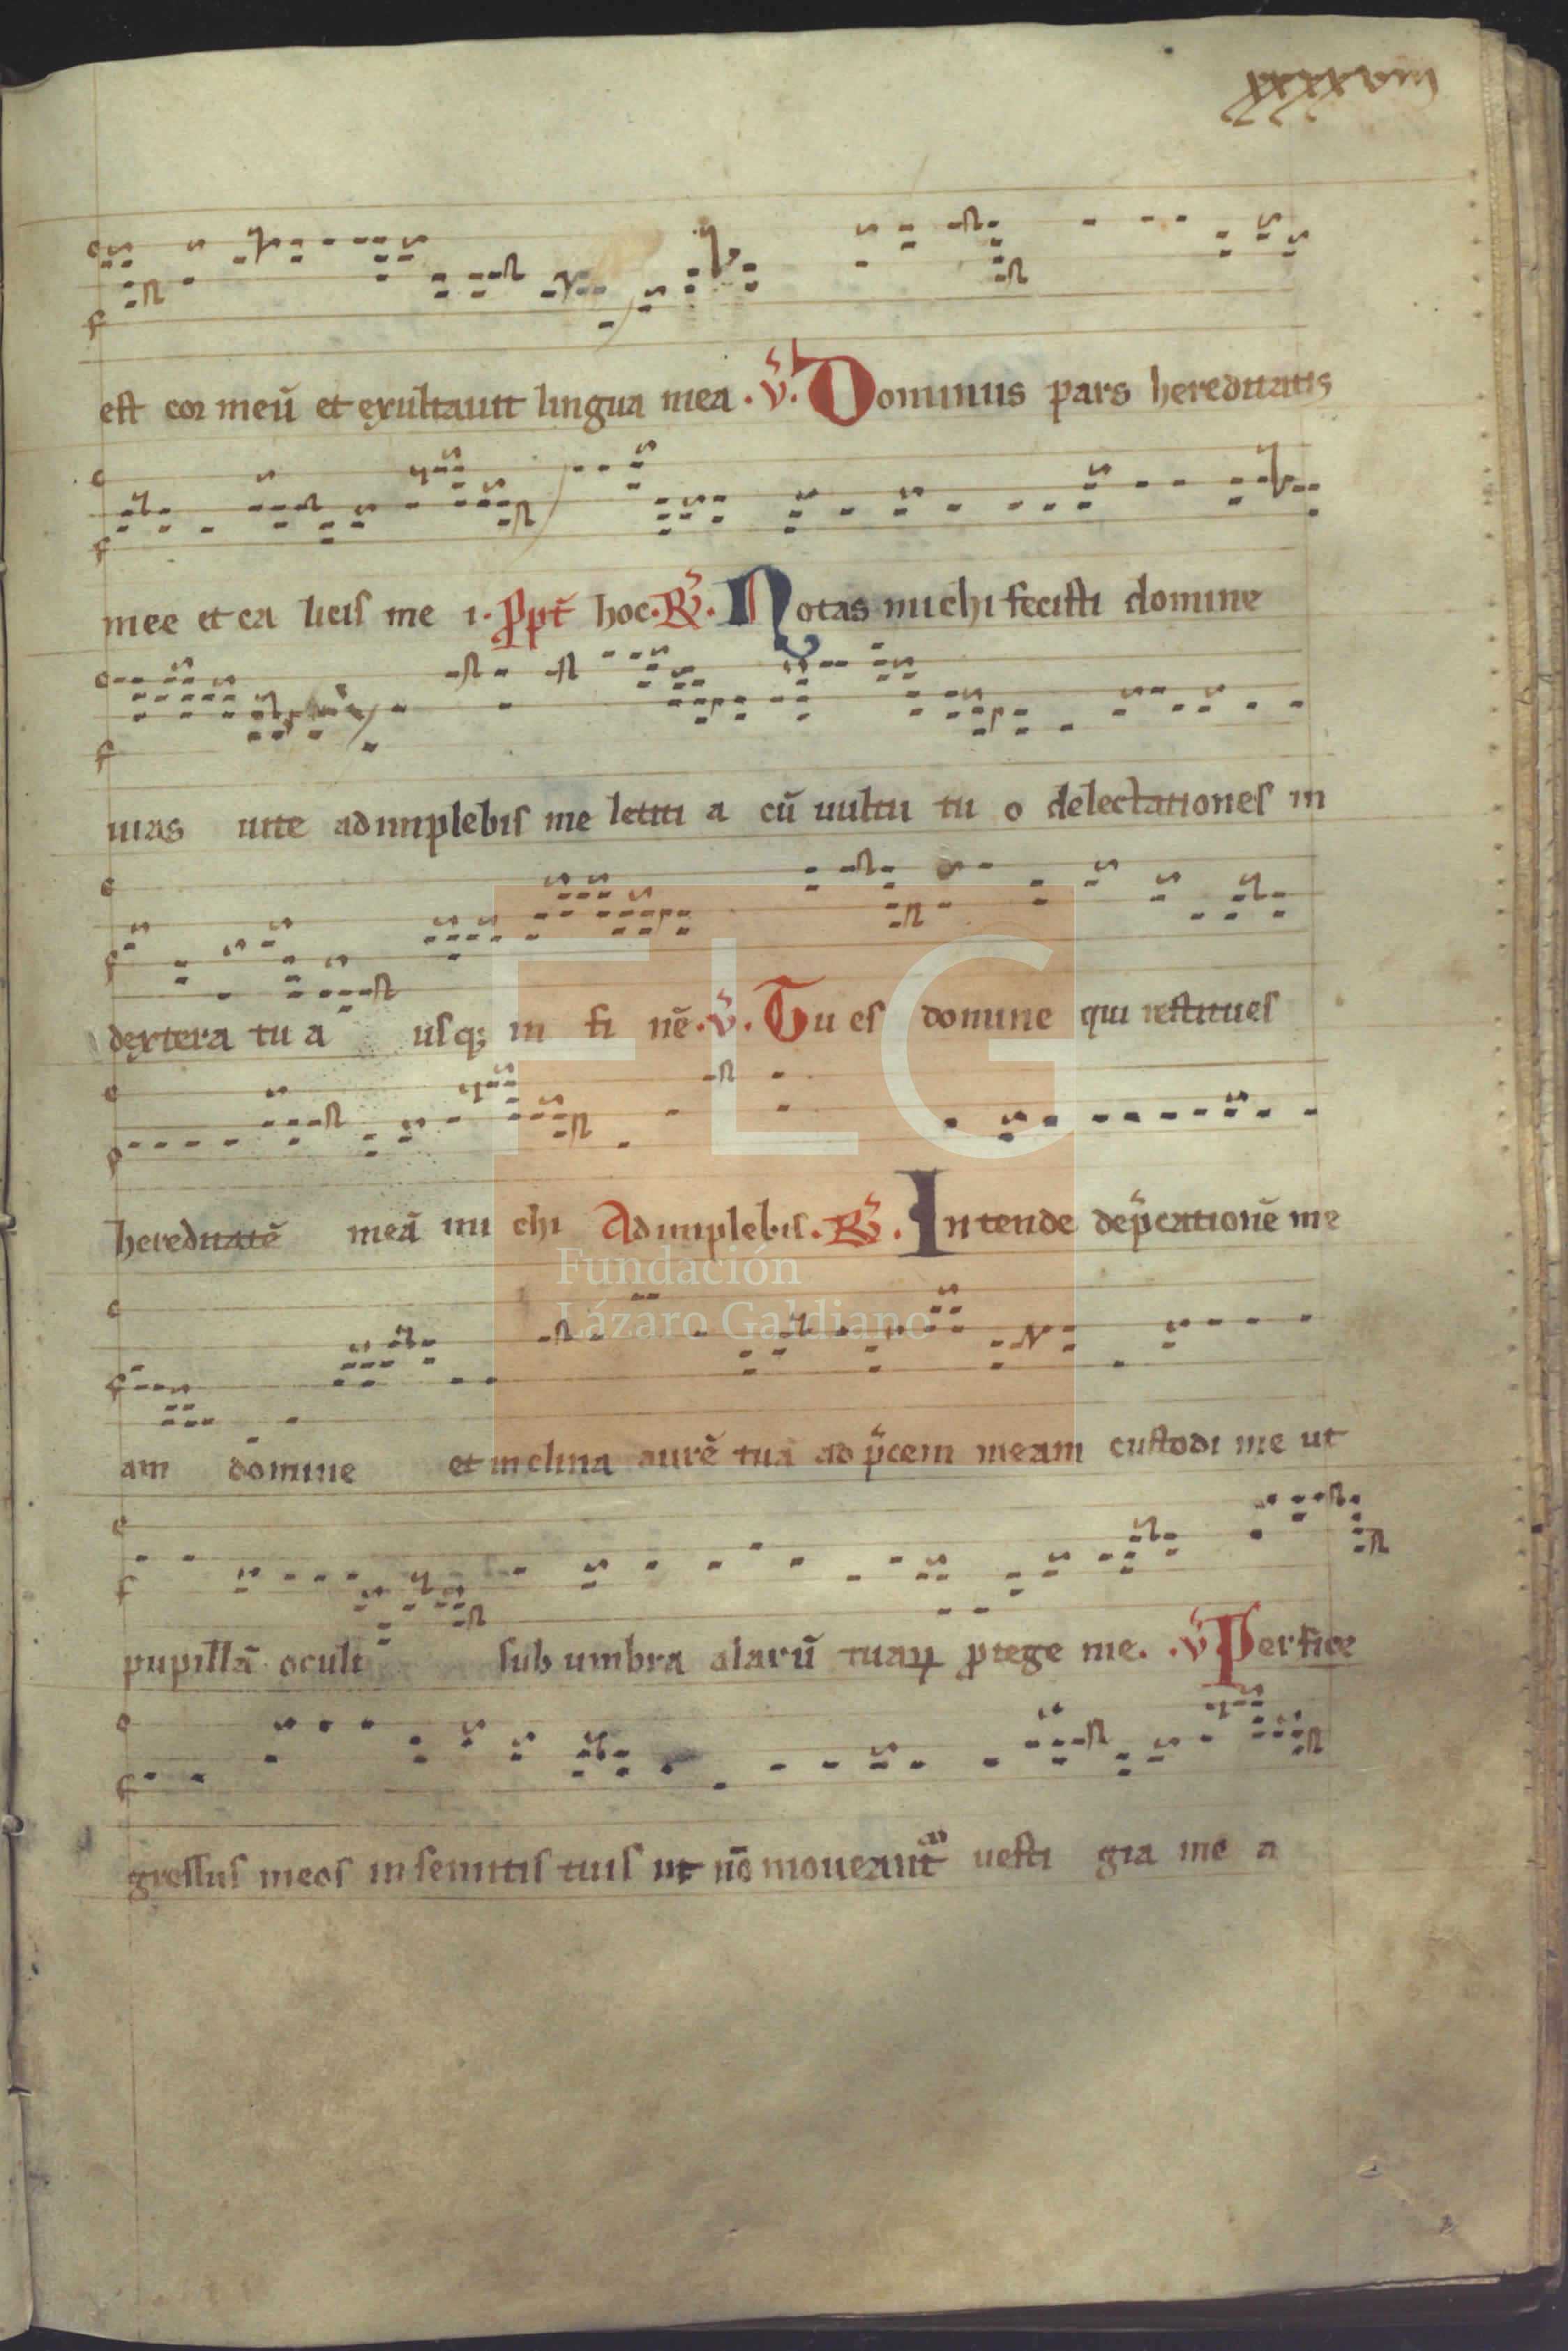 xxxxviii
est cor meū et exultauit lingua mea . v̄. Dominus pars hereditatis
mee et ca licis me i. Ꝓpt̄ hoc. R̄. Notas michi fecisti domine
uias uite adimplebis me letiti a cū uultu tu o delectationes in
dextera tu a usq; in fi nē. v̄. Tu es domine qui restitues
hereditatē meā mi chi Adimplebis. R̄. Intende dep̄cationē me
am domine et inclina aurē tuā ad p̄cem meam custodi me ut
pupillā oculi sub umbra alarū tuaꝝ ꝓtege me. v̄ Perfice
gressus meos in semitis tuis ut nō moueant̄ uesti gia me a
FLG
Fundación
Lázaro Galdiano